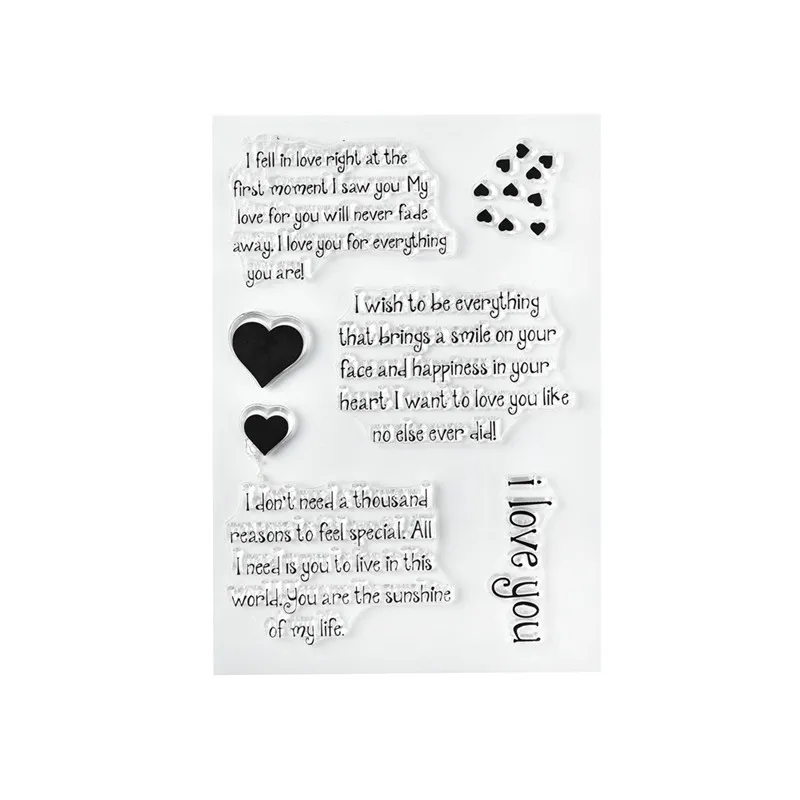 I fell in love right at the
first moment I saw you My
love for you will never fade
away. I love you for everything
you are!
I wish to be everything
that brings a smile on your
face and happiness in your
heart I want to love you like
no else ever did!
I don't need a thousand
reasons to feel special. All
I need is you to live in this
world. You are the sunshine
of my life.
i love you